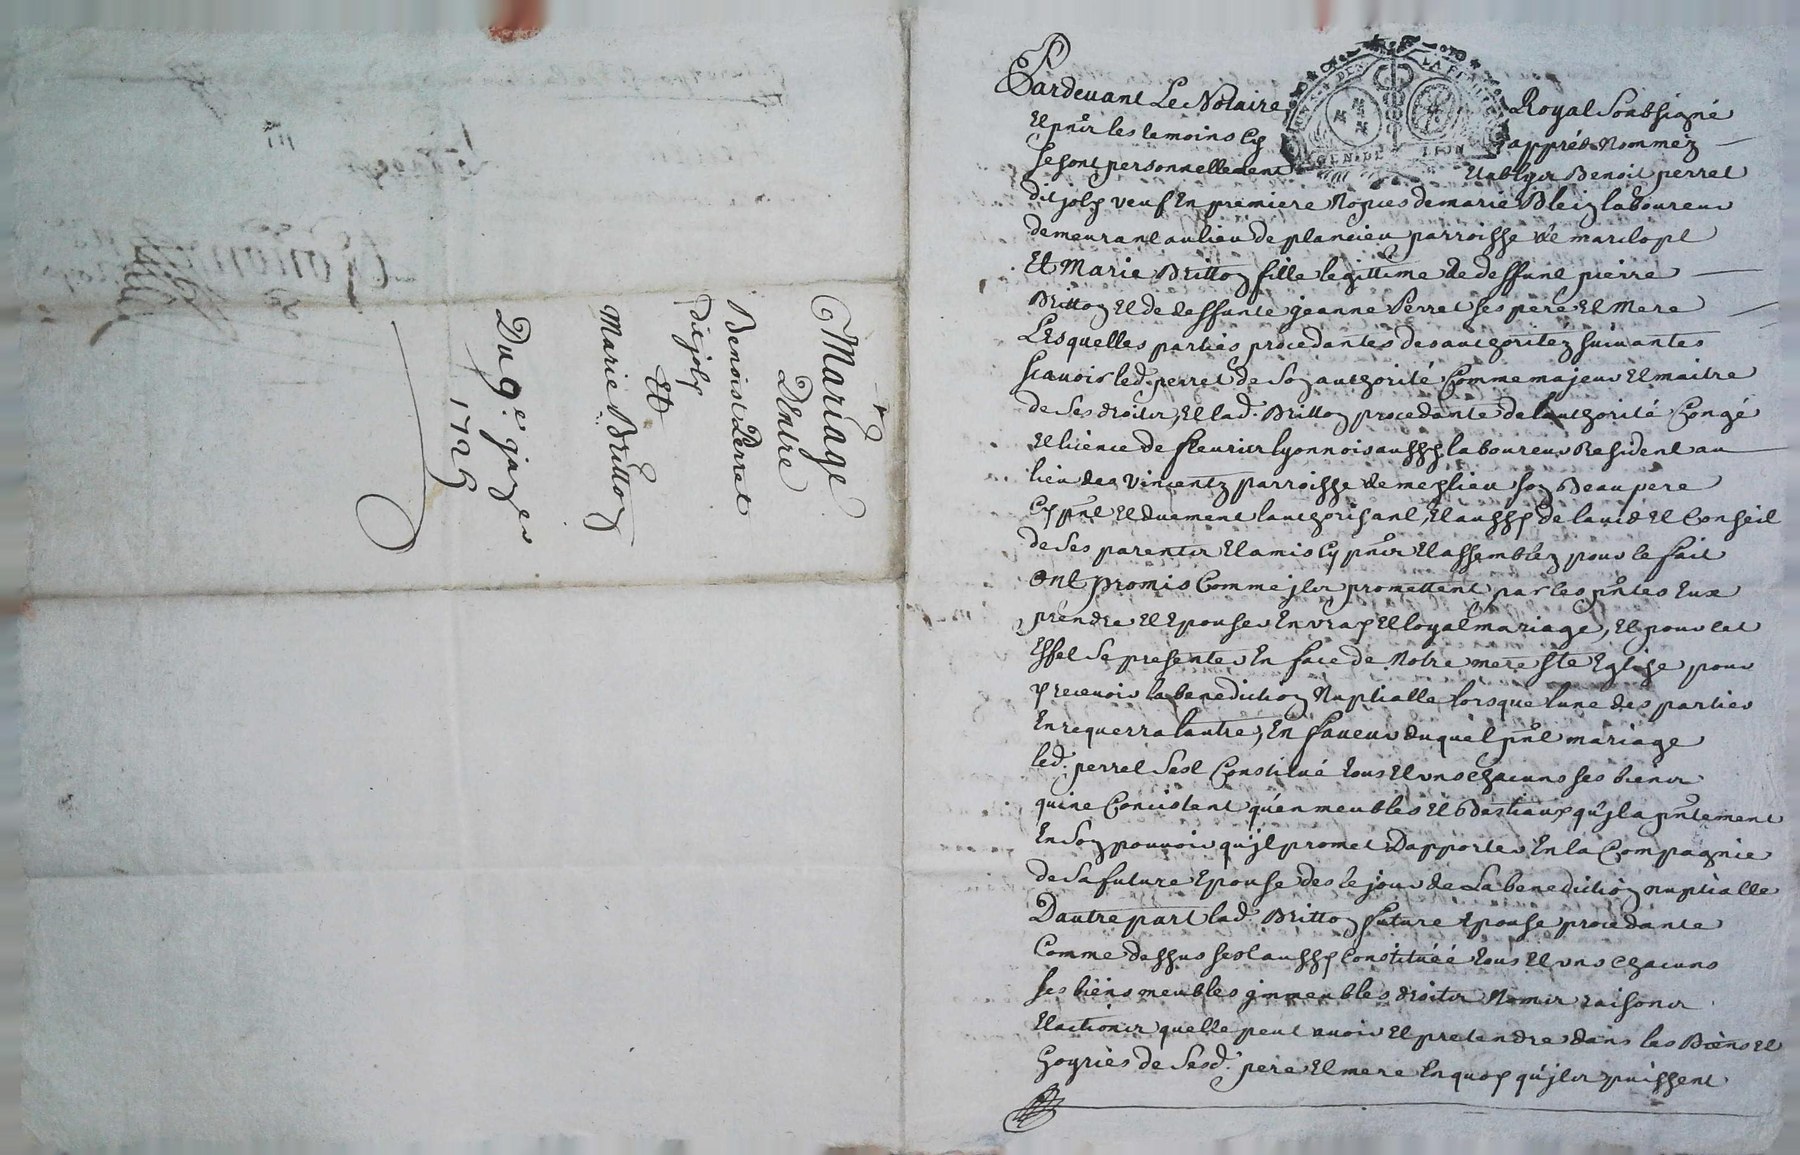 Mariage
Dentre
Benoist Perret
dit joly
Et
Marie Britton
Du 9e janer
1725
GEN·DE LION
Pardevant Le Notaire Royal Soubsigné
Et pnts les temoins Cy apprés Nommez
Se sont personnellement Etablys Benoit perret
dit joly veuf En premiere Nopces de marie Blein laboureur
demeurant au lieu de plancieu parroisse de marclopt
Et Marie Britton fille legittime de deffunt pierre
Britton Et de deffunte jeanne Perret ses pere Et Mere
Lesquelles parties procedantes des authoritéz suivantes
scavoir led. perret de son authorité Comme majeur Et maitre
de ses droits, Et lad. Britton procedante de lauthorité Congé
Et licence de fleurier lyonnois aussy laboureur Resident au
lieu des Vincentz parroisse de meslieu son Beau pere
Cy pnt Et duement lauthorisant, Et aussy de lavis Et Conseil
de ses parents Et amis Cy pnts Et assemblez pour le fait
ont promis Comme jls promettent par les pntes Eux
prendre Et Epouser En vray Et loyal mariage, Et pour cet
Effet se presenter En face de Notre mere ste Eglise pour
y recevoir la benediction Nuptialle lorsque lune des parties
En requerra lautre, En faveur duquel pnt mariage
led. perret sest Constitué tous Et uns chacuns ses biens
qui ne Concistent quén meubles Et Bestiaux qu'jl a pntement
En son pouvoir qu'jl promet Dapporter En la Compagnie
de sa future Epouse des le jour de La benediction nuptialle
Dautre part lad. Britton future Epouse procedante
Comme dessus sest aussy Constituéé tous Et uns chacuns
ses biens meubles jmmeubles droits Noms raisons
Et actions quelle peut avoir Et pretendre dans les Biens Et
hoyries de sesd. pere Et mere En quoy qu'jls puissent